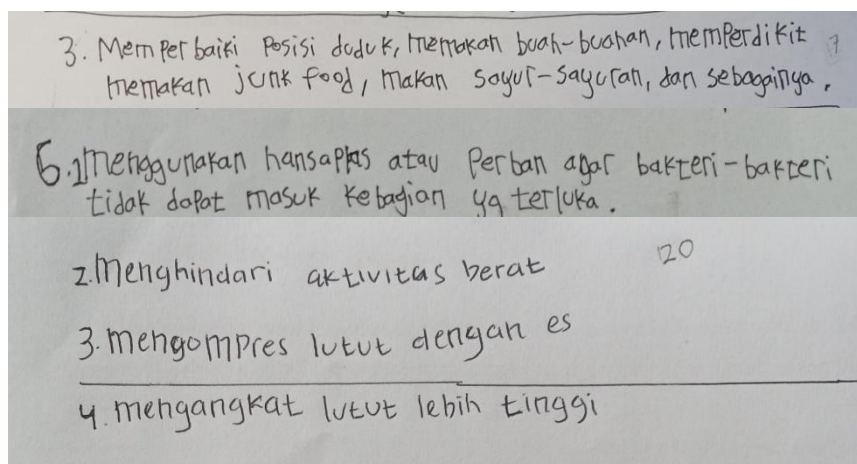 3. Memperbaiki posisi duduk, memakan buah-buahan, memperdikit
memakan junk food, makan sayur-sayuran, dan sebagainya.
6.1 menggunakan hansaplas atau perban agar bakteri-bakteri
tidak dapat masuk kebagian yg terluka.
2. Menghindari aktivitas berat
20
3. mengompres lutut dengan es
4. mengangkat lutut lebih tinggi